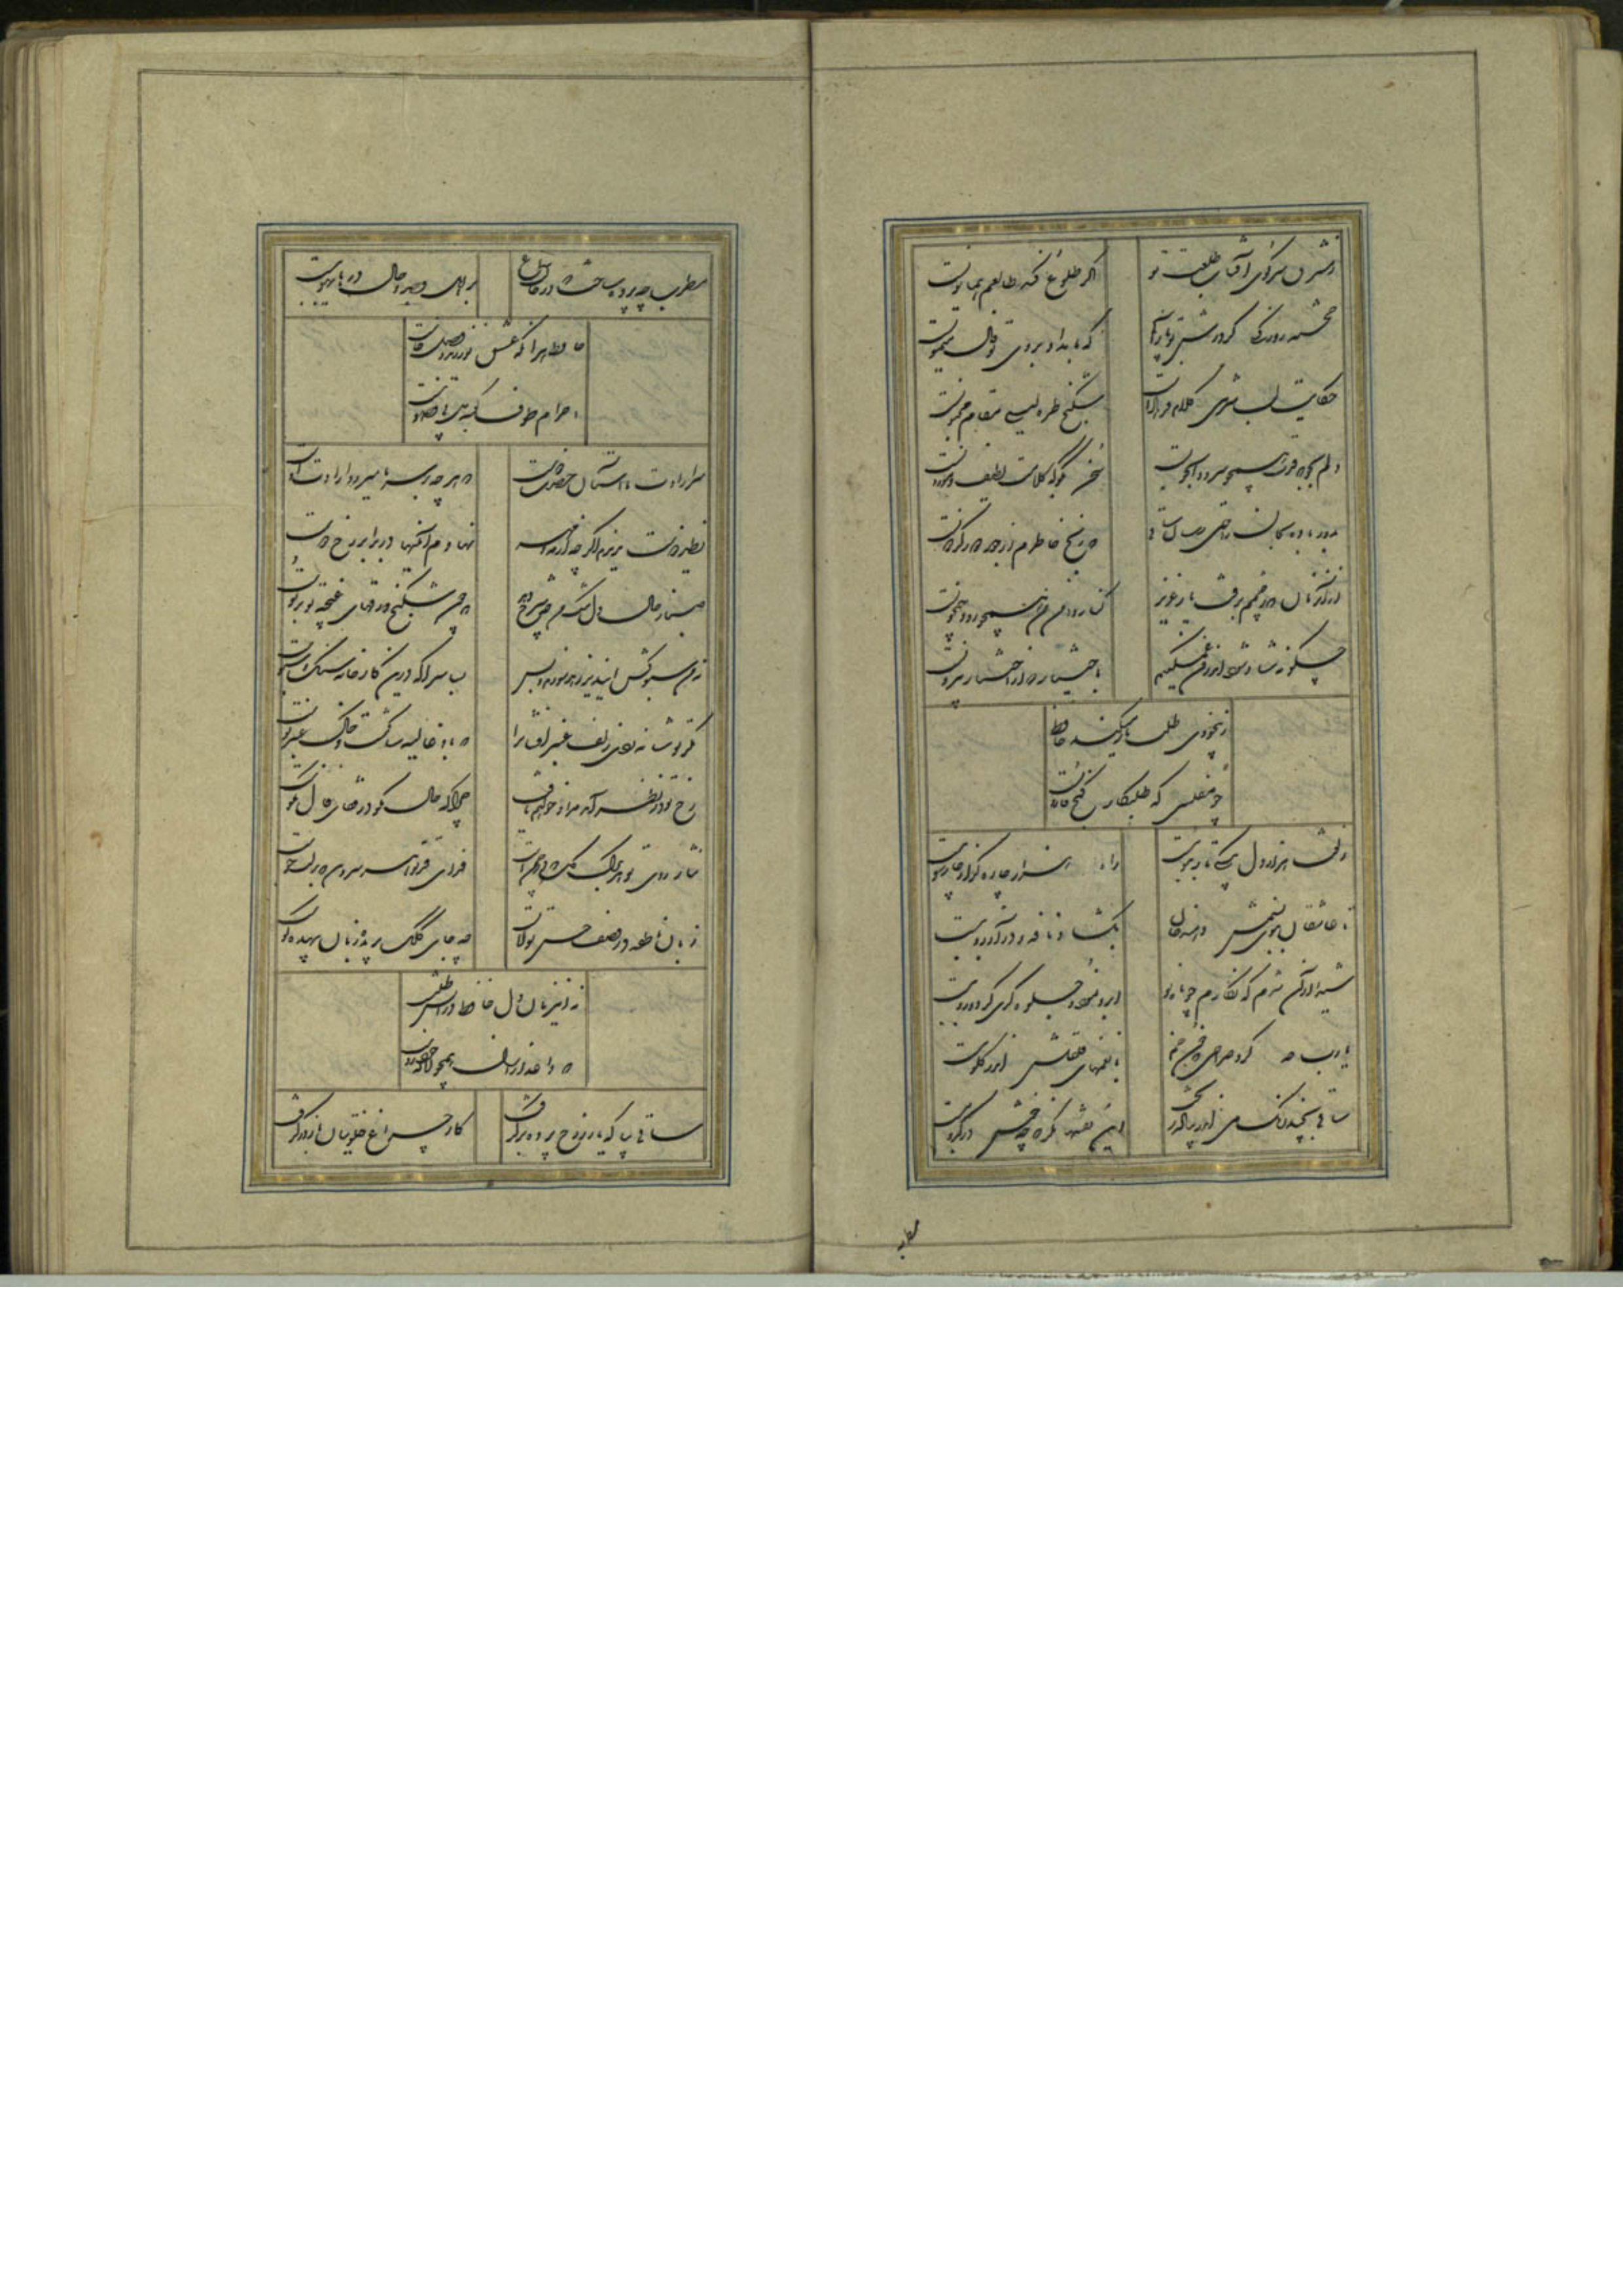 ز مشرق سر کوی آفتاب طلعت تو
اگر طلوع کند طالعم همایونست
حکایت لب شیرین کلام فرهادست
شکنج طره لیلی مقام مجنونست
دلم بجو که قدت همچو سرو دلجویست
سخن بگو که کلامت لطیف و موزونست
ز دور باده بجان راحتی رسان ساقی
که رنج خاطرم از جور دور گردونست
از آن زمان که ز چشمم برفت یار عزیز
کنار دامن من همچو رود جیحونست
چگونه شاد شود اندرون غمگینم
باختیار که از اختیار بیرونست
ز بیخودی طلب یار میکند حافظ
چو مفلسی که طلبکار گنج قارونست
زلفت هزار دل بیکی تار مو ببست
راه هزار چاره گر از چار سو ببست
تا عاشقان ببوی نسیمش دهند جان
بگشاد نافه و در آرزو ببست
شیدا از آن شدم که نگارم چو ماه نو
ابرو نمود و جلوه گری کرد و رو ببست
یارب چه کرد صراحی که خون خم
با نغمهای قلقلش اندر گلو ببست
ساقی بچند رنگ می اندر پیاله ریخت
این نقشها نگر که چه خوش در کدو ببست
مطرب
مطرب چه پرده ساخت که در پرده سماع
بر اهل وجد و حال در های و هو ببست
حافظ هر آنکه عشق نورزید و وصل خواست
احرام طوف کعبه دل بی وضو ببست
سر ارادت ما و آستان حضرت دوست
که هر چه بر سر ما میرود ارادت اوست
نظیر دوست ندیدم اگر چه از مه و مهر
نهادم آینها در برابر رخ دوست
صبا ز حال دل تنگ ما چه شرح دهد
که چون شکنج ورقهای غنچه تو بر توست
نه من سبوکش این دیر رند سوزم و بس
بسا سرا که درین کارخانه سنگ و سبوست
مگر تو شانه زدی زلف عنبر افشانرا
که باد غالیه سا گشت و خاک عنبر بوست
رخ تو در نظر آمد مراد خواهم یافت
چرا که حال نکو در قفای فال نکوست
نثار روی تو هر برگ گل که در چمن است
فدای قد تو هر سرو بن که بر لب جوست
زبان ناطقه در وصف حسن تو لالست
چه جای کلک بریده زبان بیهده گوست
نه این زمان دل حافظ در آتش طلبست
که داغدار ازل همچو لاله خودروست
ساقی بیا که یار ز رخ پرده بر گرفت
کار چراغ خلوتیان باز در گرفت